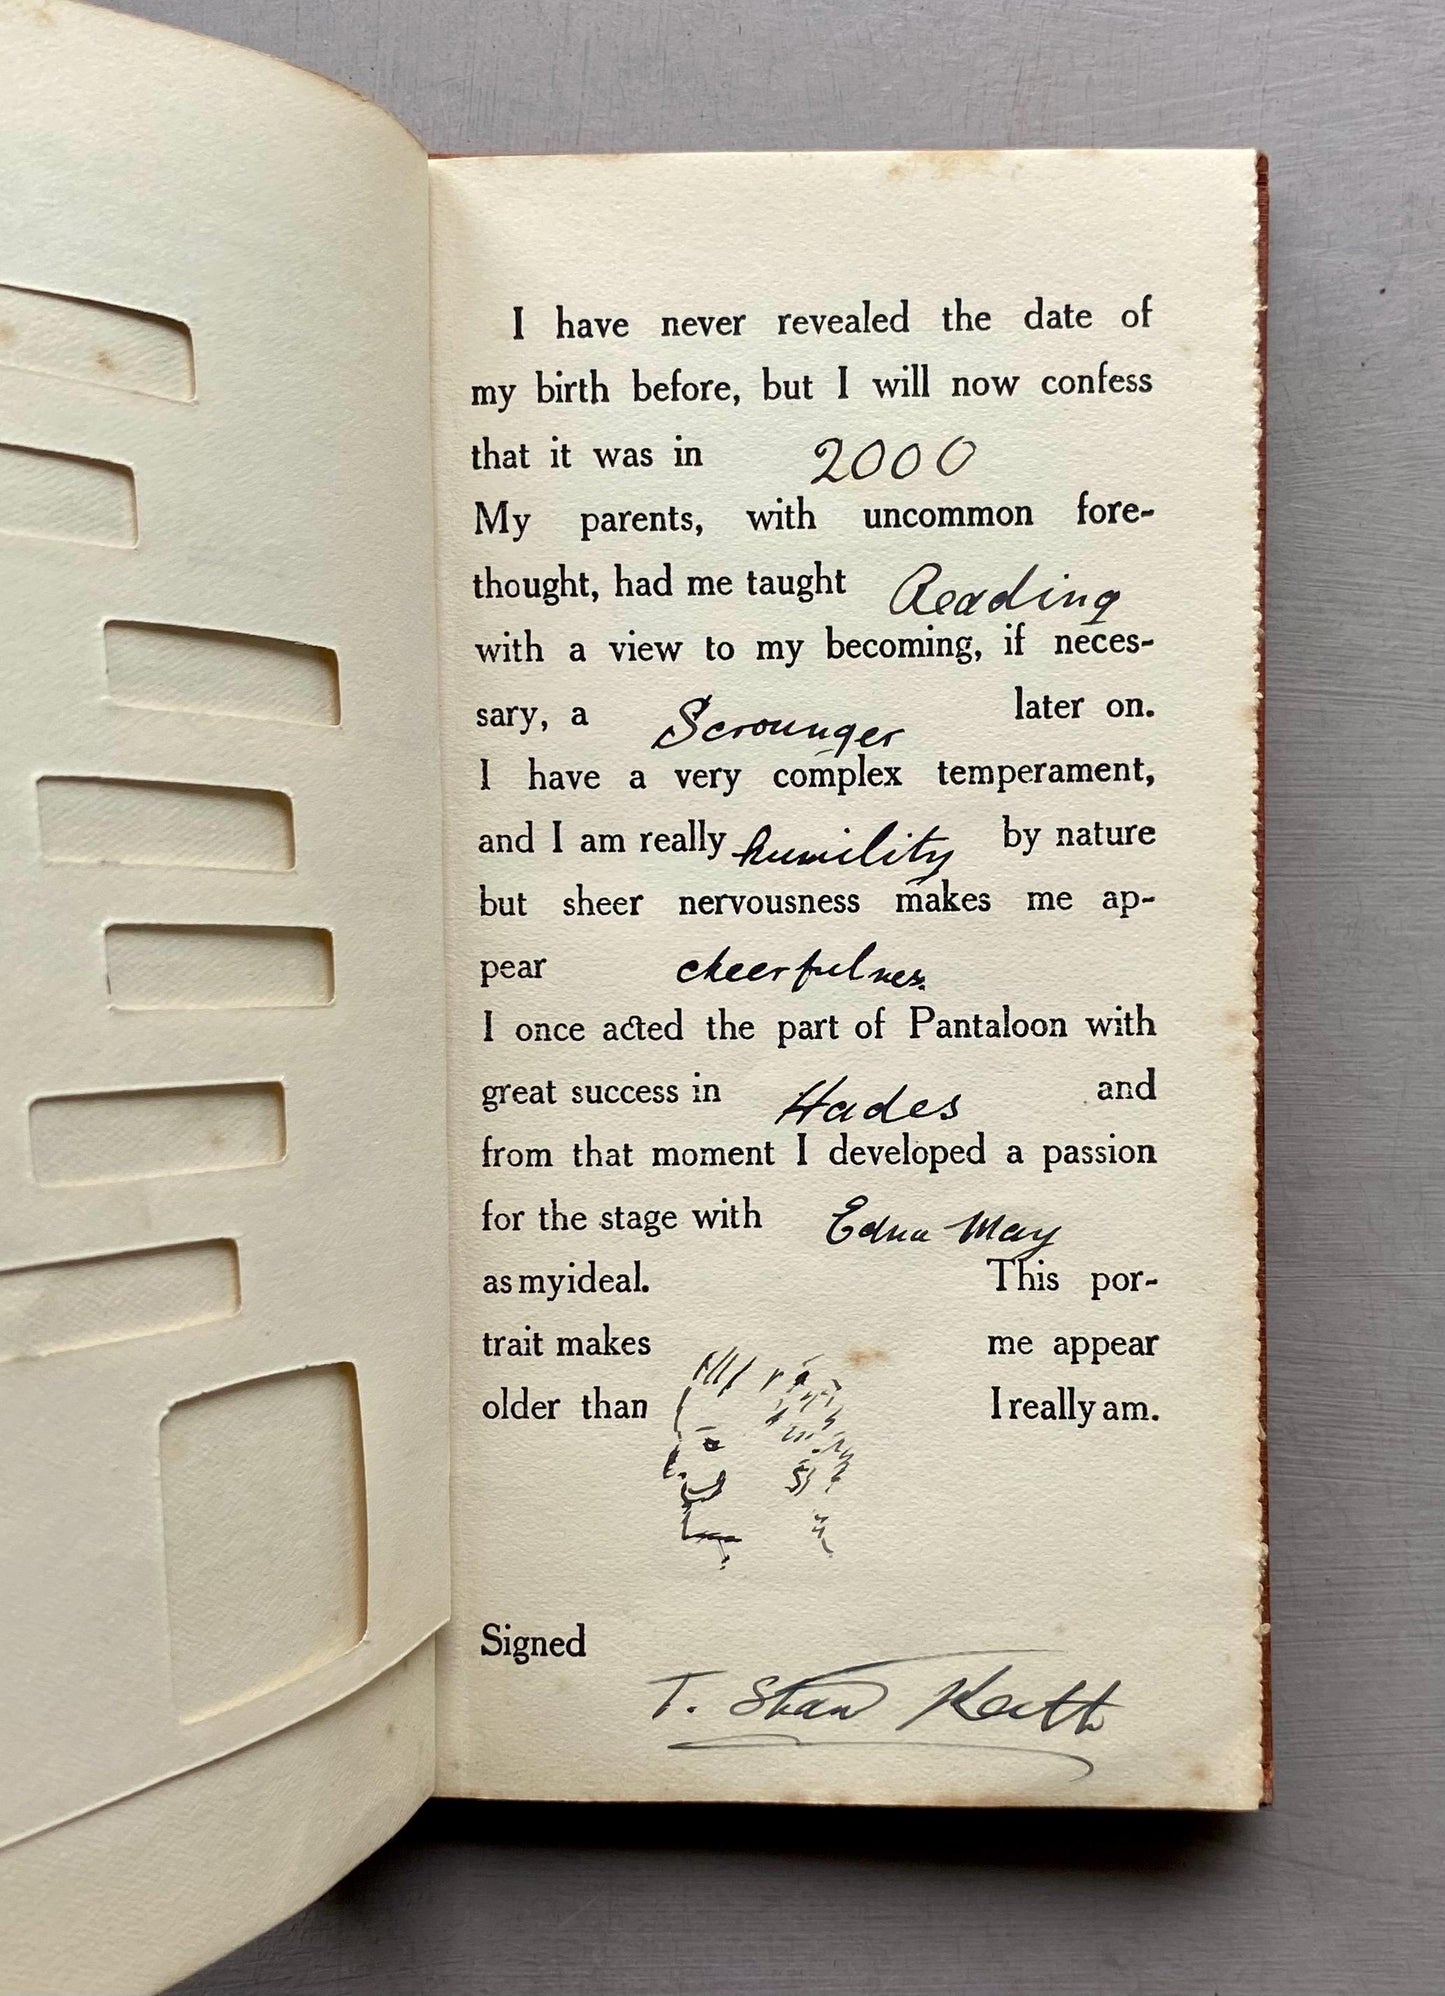 I have never revealed the date of
my birth before, but I will now confess
that it was in 2000
My parents, with uncommon fore-
thought, had me taught Reading
with a view to my becoming, if neces-
sary, a Scrounger later on.
I have a very complex temperament,
and I am really humility by nature
but sheer nervousness makes me ap-
pear cheerfulness.
I once acted the part of Pantaloon with
great success in Hades and
from that moment I developed a passion
for the stage with Edna May
as my ideal. This por-
trait makes me appear
older than I really am.
Signed
T. Shaw Keith